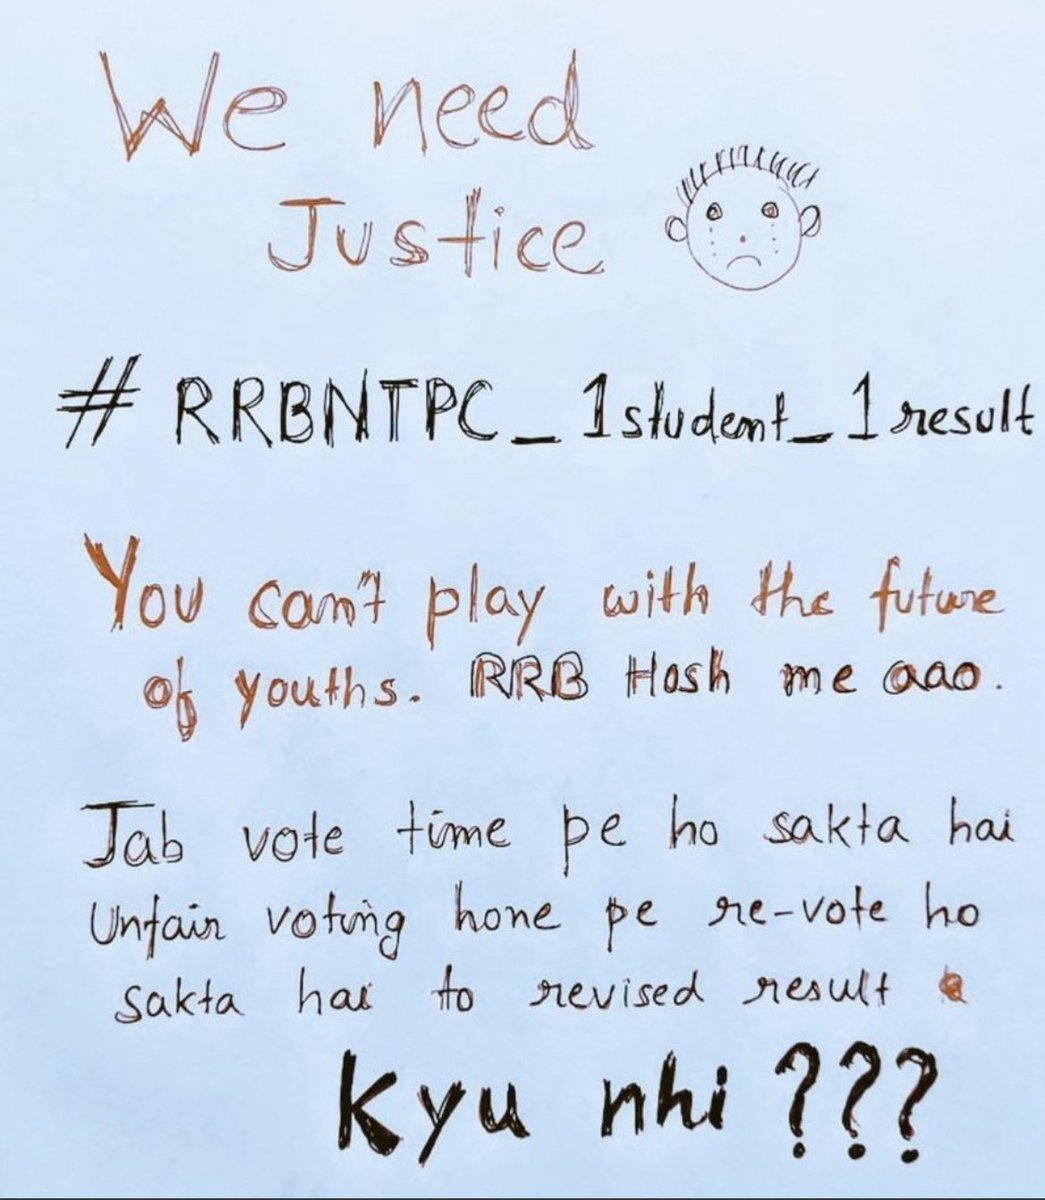 We need
Justice
# RRBNTPC_1student_1result
You can't play with the future
of youths. RRB Hosh me aao.
Jab vote time pe ho sakta hai
Unfair voting hone pe re-vote ho
sakta hai to revised result
kyu nhi ???